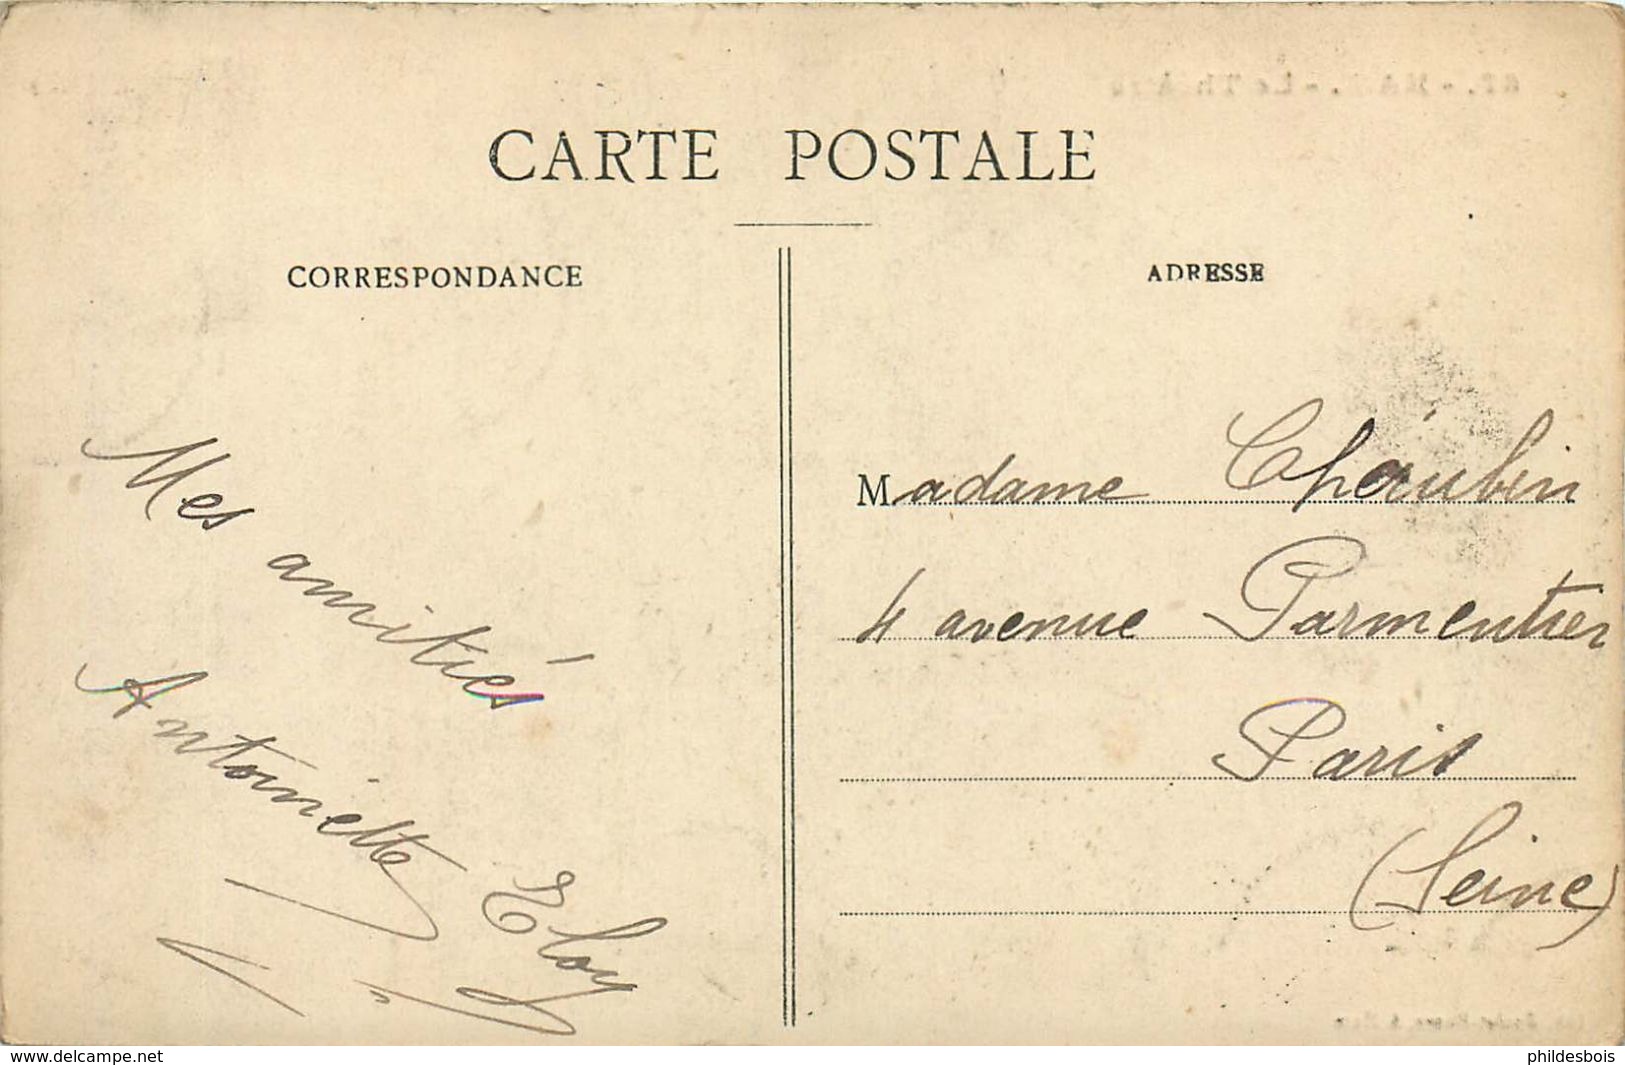 CARTE POSTALE
CORRESPONDANCE
ADRESSE
Mes amitiés
Antoinette Eloy
Madame
4 avenue Parmentier
Paris
(Seine)
www.delcampe.net
phildesbois